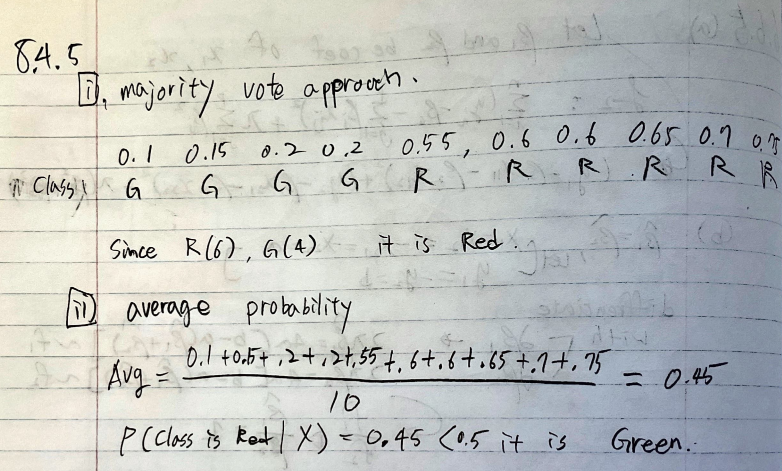 8.4.5
i), majority vote approach.
0.1 0.15 0.2 0.2 0.55, 0.6 0.6 0.65 0.7 0.75
Class) G G G G R R R R R R
Since R(6), G(4) it is Red.
ii) average probability
Avg = 0.1+0.5+.2+.2+.55+.6+.6+.65+.7+.75 / 10 = 0.45
P(Class is Red | X) = 0.45 < 0.5 it is Green.